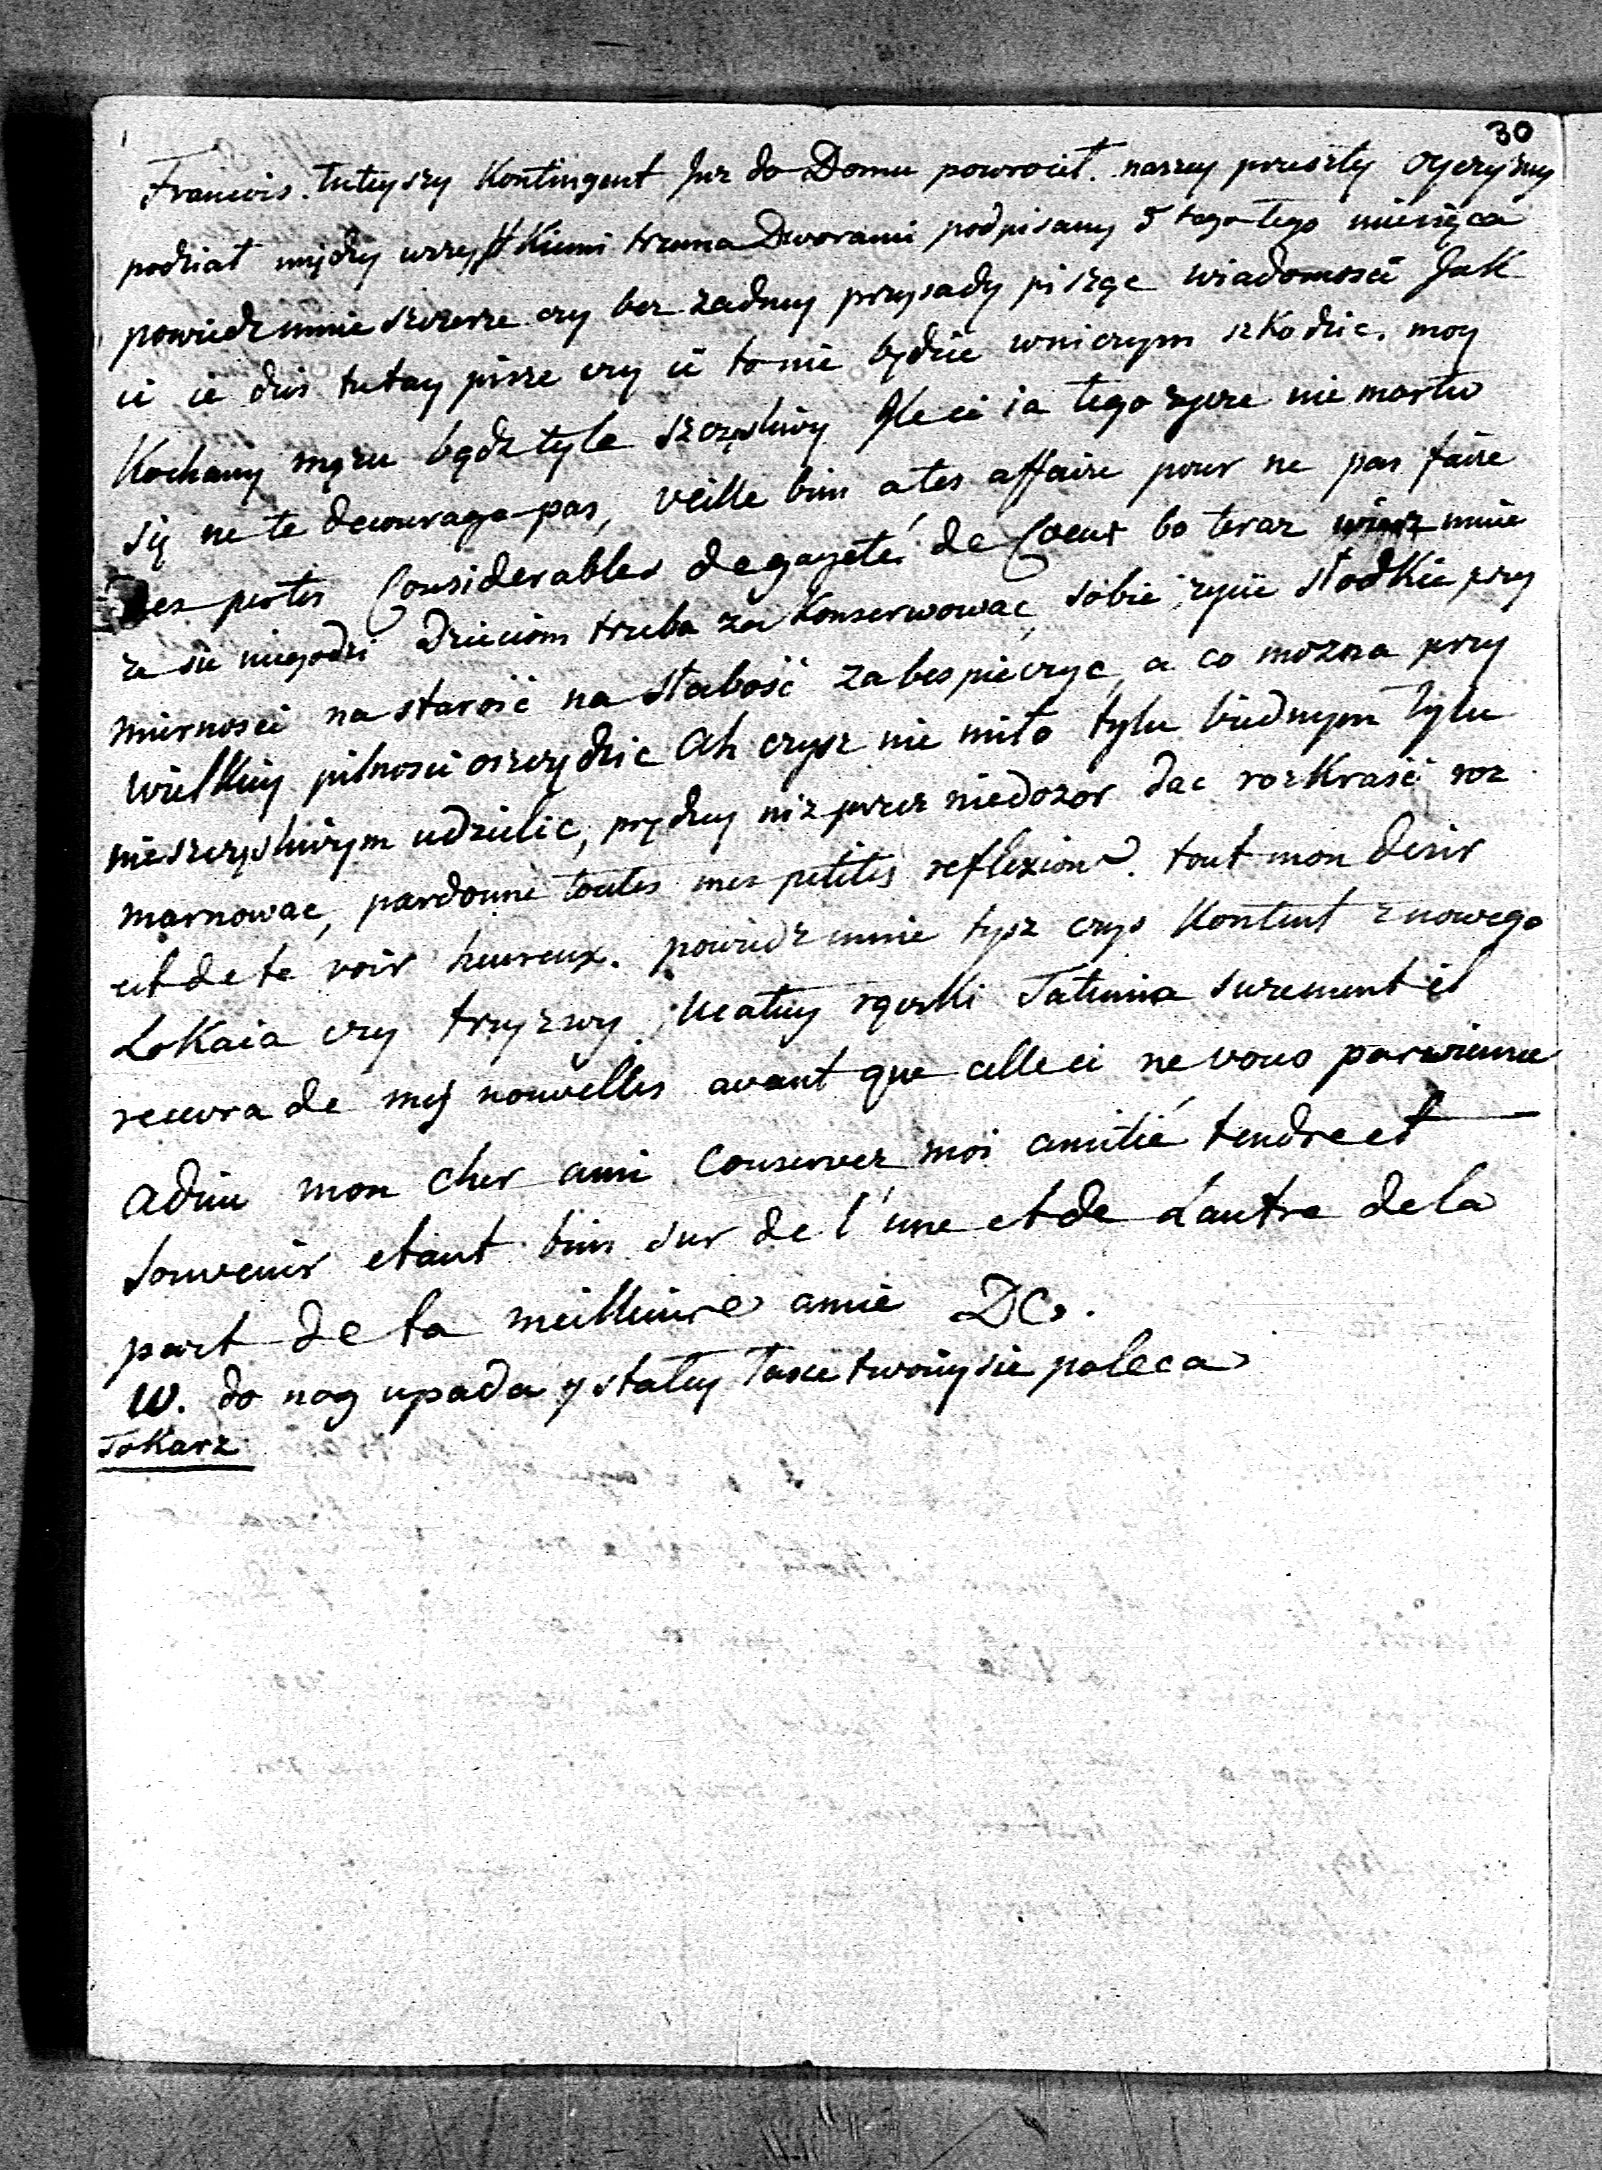 30
Francois. tuteyszy Kontingent Juz do Domu powrocił. naszey przeszły Oyczyzny
podział między wszystkiemi trzema Dworami podpisany 5 tego tego miesięca
powiedz mnie szczerze czy bez zadney przysady piszęc wiadomosci Jak
ci ie dzis tutay pisze czy ci to nie będzie wniczym szkodzic. moy
Kochany mężu bądz tyle szczęsliwy Jle ci ia tego zycze nie martw
się ne te decourage pas, veille bien a tes affaire pour ne pas faire
des pertes Considerables de gayeté de Coeur bo teraz wierz mnie
ze sie niegodzi Dzieciom trzeba za Konserwowac, sobie zycie słodkie przy
miernosci na starość na słabość zabespieczyc, a co mozna przy
wielkiey pilnosci oszczędzic Ah czysz nie miło tylu biednym tylu
nieszczęsliwym udzielic, prędzey niz przez niedozor dac rozkraść roz
marnowac, pardonne toutes mes petites reflexions. tout mon desir
est de te voir heureux. powiedz mnie tysz czys Kontent z nowego
LoKaia czy trzyzwy, ucałuy rączki Tatunia surement il
recevra de mes nouvelles avant que celle ci ne vous parvienne
adieu mon cher ami Conservez moi amitié tendre et
souvenir etant bien sur de l'une et de L'autre de la
part de ta meilleure amie DC.
W. do nog upada y stałey łasce twoiey sie poleca
ToKarz